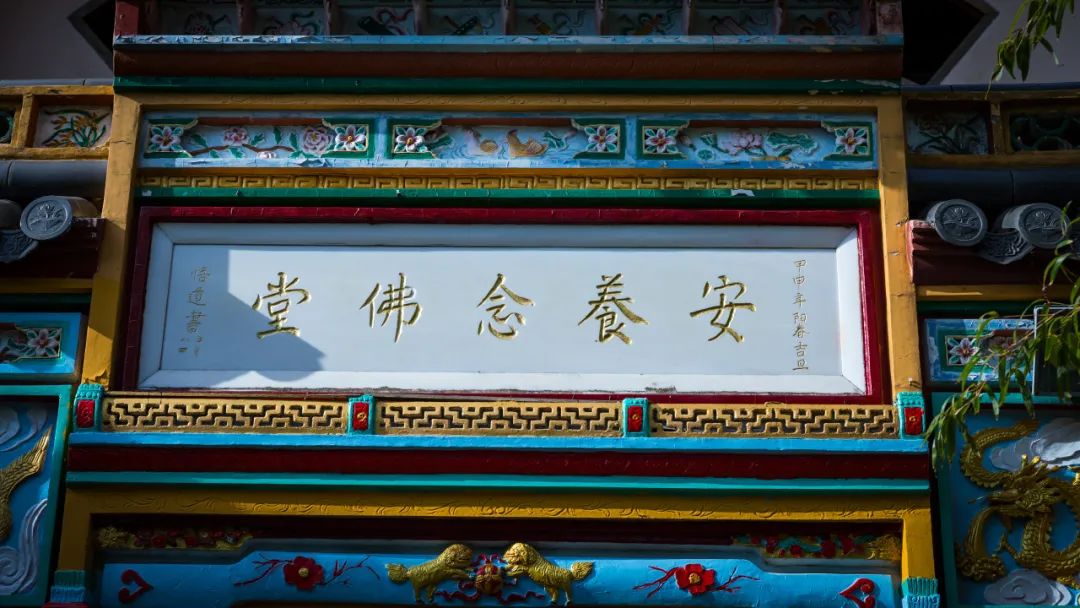 甲申年阳春吉旦
安養念佛堂
悟道書